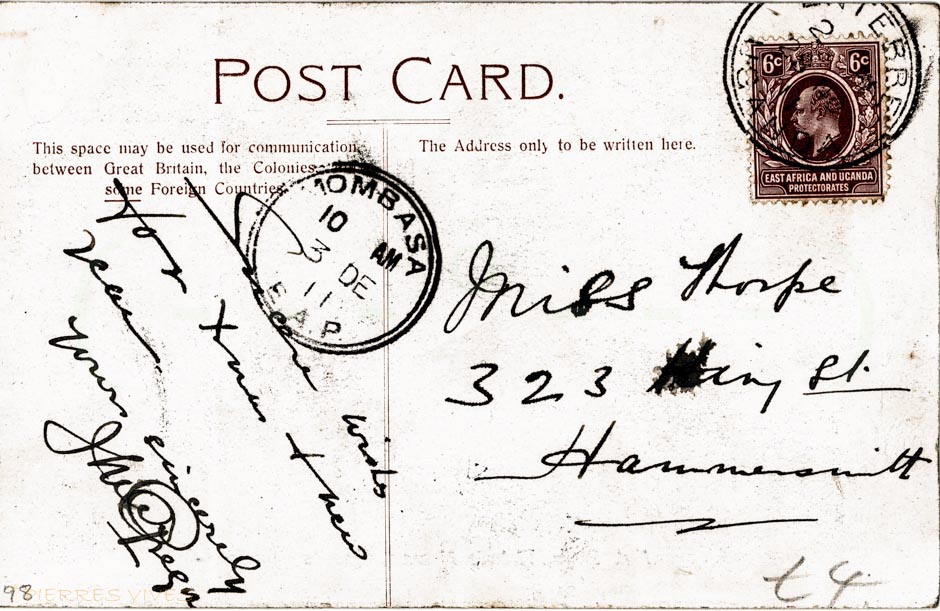 POST CARD.
This space may be used for communication
between Great Britain, the Colonies
some Foreign Countries
The Address only to be written here.
ENTEBBE
2
6c 6c
EAST AFRICA AND UGANDA
PROTECTORATES
MOMBASA
10 AM
3 DE
11
E.A.P
Sincere wishes
for Xmas + new
year
yours sincerely
Miss Thorpe
323 King St.
Hammersmith
£4
98
PIERRES VIVES